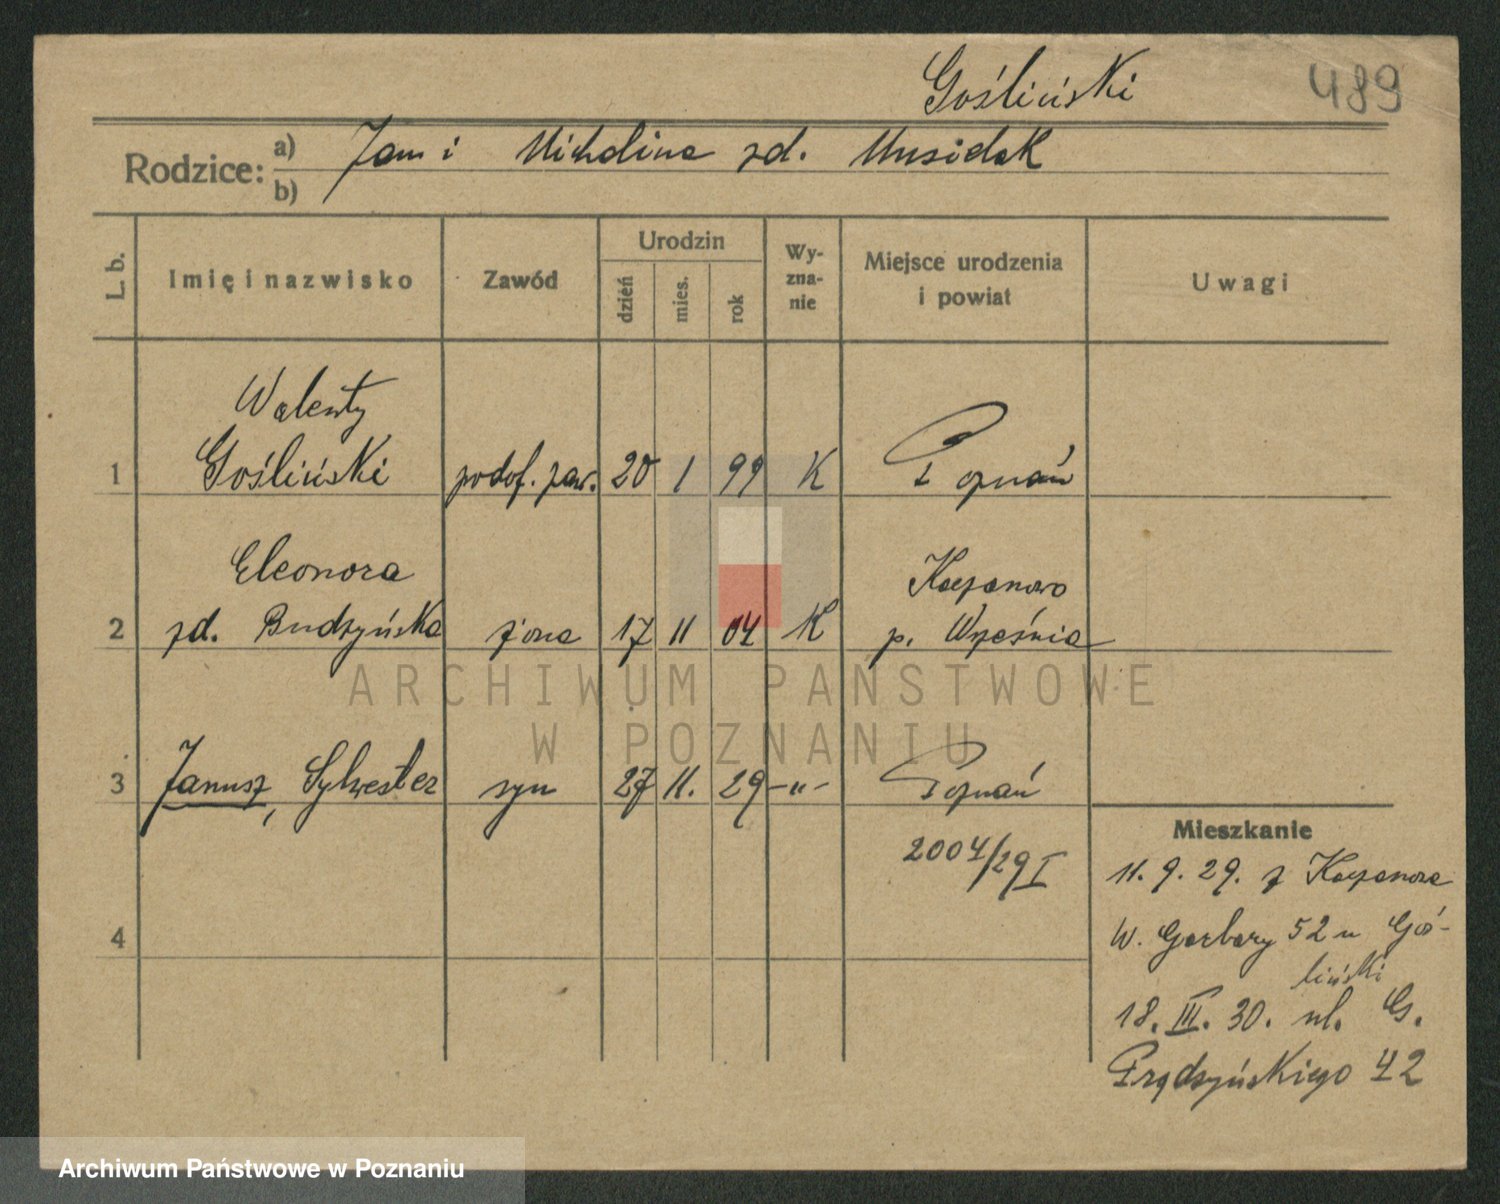 Gośliński 489
Rodzice: a) Jan i Michalina zd. Musidak
b)
L. b. Imię i nazwisko Zawód Urodzin dzień mies. rok Wyznanie Miejsce urodzenia i powiat Uwagi
Walenty
1 Gośliński podof. zaw. 20 1 99 K Poznań
Eleonora Kaczanowo
2 zd. Budzyńska żona 17 11 04 K p. Września
3 Janusz, Sylwester syn 27 11. 29 -"- Poznań
2004/29 I
4
Mieszkanie
11. 9. 29. z Kaczanowa
W. Garbary 52 u Goś-
liński
18. III. 30. ul. G.
Prądzyńskiego 42
ARCHIWUM PAŃSTWOWE
W POZNANIU
Archiwum Państwowe w Poznaniu